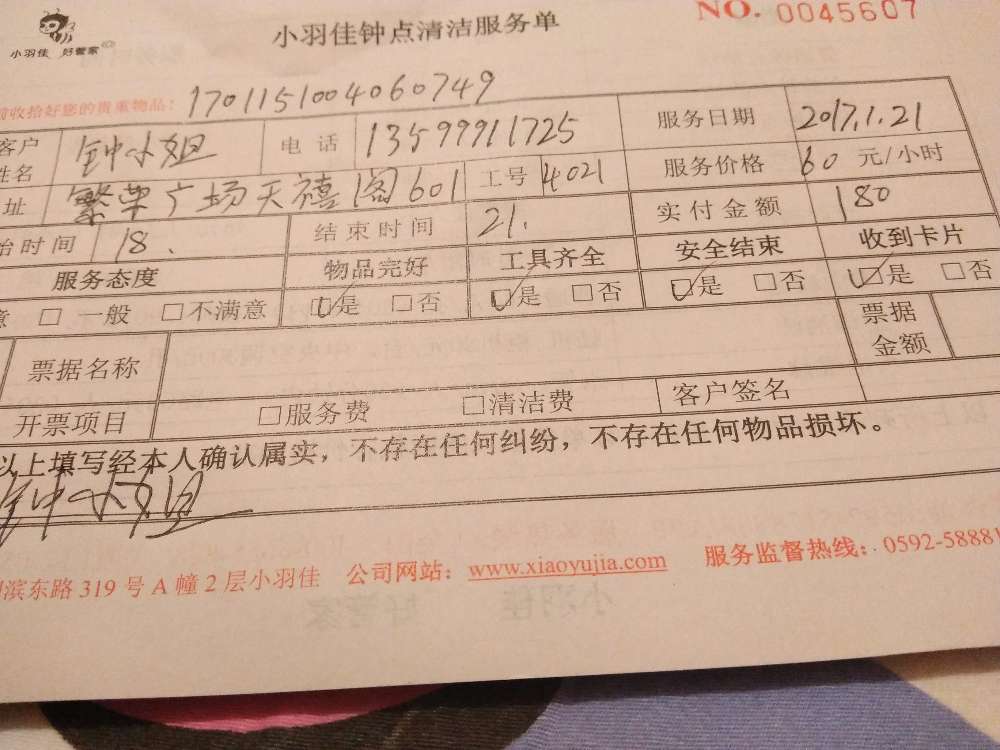 小羽佳 好管家
小羽佳钟点清洁服务单
NO. 0045607
前收拾好您的贵重物品: 1701151004060749
客户姓名 钟小姐 电话 13599911725 服务日期 2017.1.21
址 繁荣广场天禧阁601 工号 4021 服务价格 60 元/小时
始时间 18. 结束时间 21. 实付金额 180
服务态度 物品完好 工具齐全 安全结束 收到卡片
意 □ 一般 □不满意 ☑是 □否 ☑是 □否 ☑是 □否 ☑是 □否
票据名称 票据金额
开票项目 □服务费 □清洁费 客户签名
以上填写经本人确认属实，不存在任何纠纷，不存在任何物品损坏。
钟小姐
滨东路 319 号 A 幢 2 层小羽佳 公司网站: www.xiaoyujia.com 服务监督热线: 0592-58881